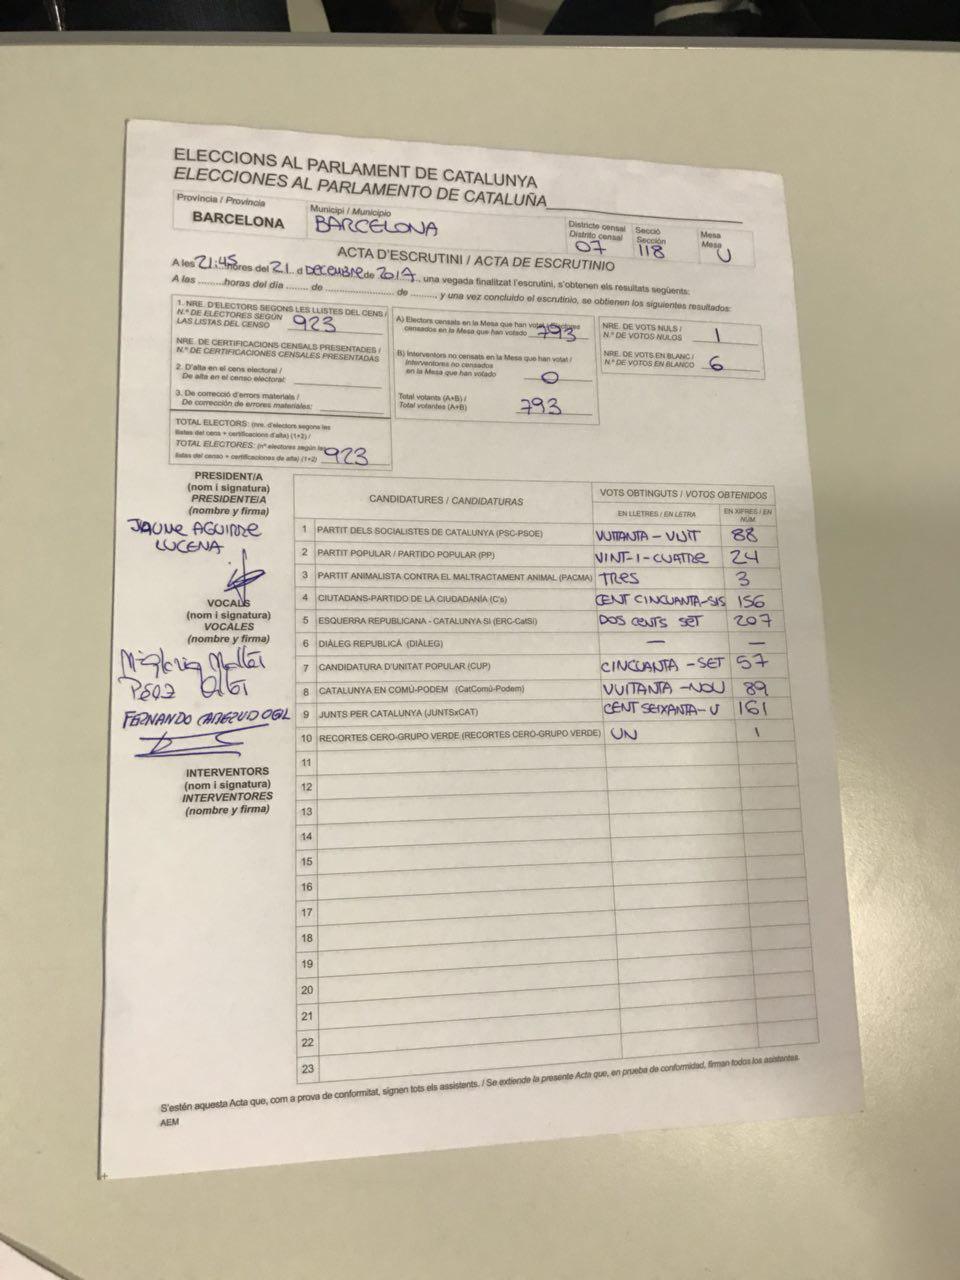 ELECCIONS AL PARLAMENT DE CATALUNYA
ELECCIONES AL PARLAMENTO DE CATALUÑA
Província / Provincia
BARCELONA
Municipi / Municipio
BARCELONA
Districte censal
Distrito censal
07
Secció
Sección
118
Mesa
Mesa
U
ACTA D'ESCRUTINI / ACTA DE ESCRUTINIO
A les 21:45 hores del 21 d DECEMBRE de 2017, una vegada finalitzat l'escrutini, s'obtenen els resultats següents:
A las ........horas del día ....... de ....................... de ........, y una vez concluido el escrutinio, se obtienen los siguientes resultados:
1. NRE. D'ELECTORS SEGONS LES LLISTES DEL CENS /
N.º DE ELECTORES SEGÚN
LAS LISTAS DEL CENSO 923
NRE. DE CERTIFICACIONS CENSALS PRESENTADES /
N.º DE CERTIFICACIONES CENSALES PRESENTADAS
2. D'alta en el cens electoral /
De alta en el censo electoral:
3. De correcció d'errors materials /
De corrección de errores materiales:
TOTAL ELECTORS: (nre. d'electors segons les
llistes del cens + certificacions d'alta) (1+2) /
TOTAL ELECTORES: (nº electores según las
listas del censo + certificaciones de alta) (1+2) 923
A) Electors censats en la Mesa que han votat / Electores
censados en la Mesa que han votado 793
B) Interventors no censats en la Mesa que han votat /
Interventores no censados
en la Mesa que han votado 0
Total votants (A+B) /
Total votantes (A+B) 793
NRE. DE VOTS NULS /
N.º DE VOTOS NULOS 1
NRE. DE VOTS EN BLANC /
N.º DE VOTOS EN BLANCO 6
PRESIDENT/A
(nom i signatura)
PRESIDENTE/A
(nombre y firma)
JAUME AGUIRRE
LUCENA
VOCALS
(nom i signatura)
VOCALES
(nombre y firma)
FERNANDO
INTERVENTORS
(nom i signatura)
INTERVENTORES
(nombre y firma)
CANDIDATURES / CANDIDATURAS
VOTS OBTINGUTS / VOTOS OBTENIDOS
EN LLETRES / EN LETRA
EN XIFRES / EN NÚM.
1 PARTIT DELS SOCIALISTES DE CATALUNYA (PSC-PSOE) VUITANTA-VUIT 88
2 PARTIT POPULAR / PARTIDO POPULAR (PP) VINT-I-CUATRE 24
3 PARTIT ANIMALISTA CONTRA EL MALTRACTAMENT ANIMAL (PACMA) TRES 3
4 CIUTADANS-PARTIDO DE LA CIUDADANÍA (C's) CENT CINCUANTA-SIS 156
5 ESQUERRA REPUBLICANA - CATALUNYA SÍ (ERC-CatSí) DOS CENTS SET 207
6 DIÀLEG REPUBLICÀ (DIÀLEG) — —
7 CANDIDATURA D'UNITAT POPULAR (CUP) CINCUANTA-SET 57
8 CATALUNYA EN COMÚ-PODEM (CatComú-Podem) VUITANTA-NOU 89
9 JUNTS PER CATALUNYA (JUNTSxCAT) CENT SEIXANTA-U 161
10 RECORTES CERO-GRUPO VERDE (RECORTES CERO-GRUPO VERDE) UN 1
11
12
13
14
15
16
17
18
19
20
21
22
23
S'estén aquesta Acta que, com a prova de conformitat, signen tots els assistents. / Se extiende la presente Acta que, en prueba de conformidad, firman todos los asistentes.
AEM